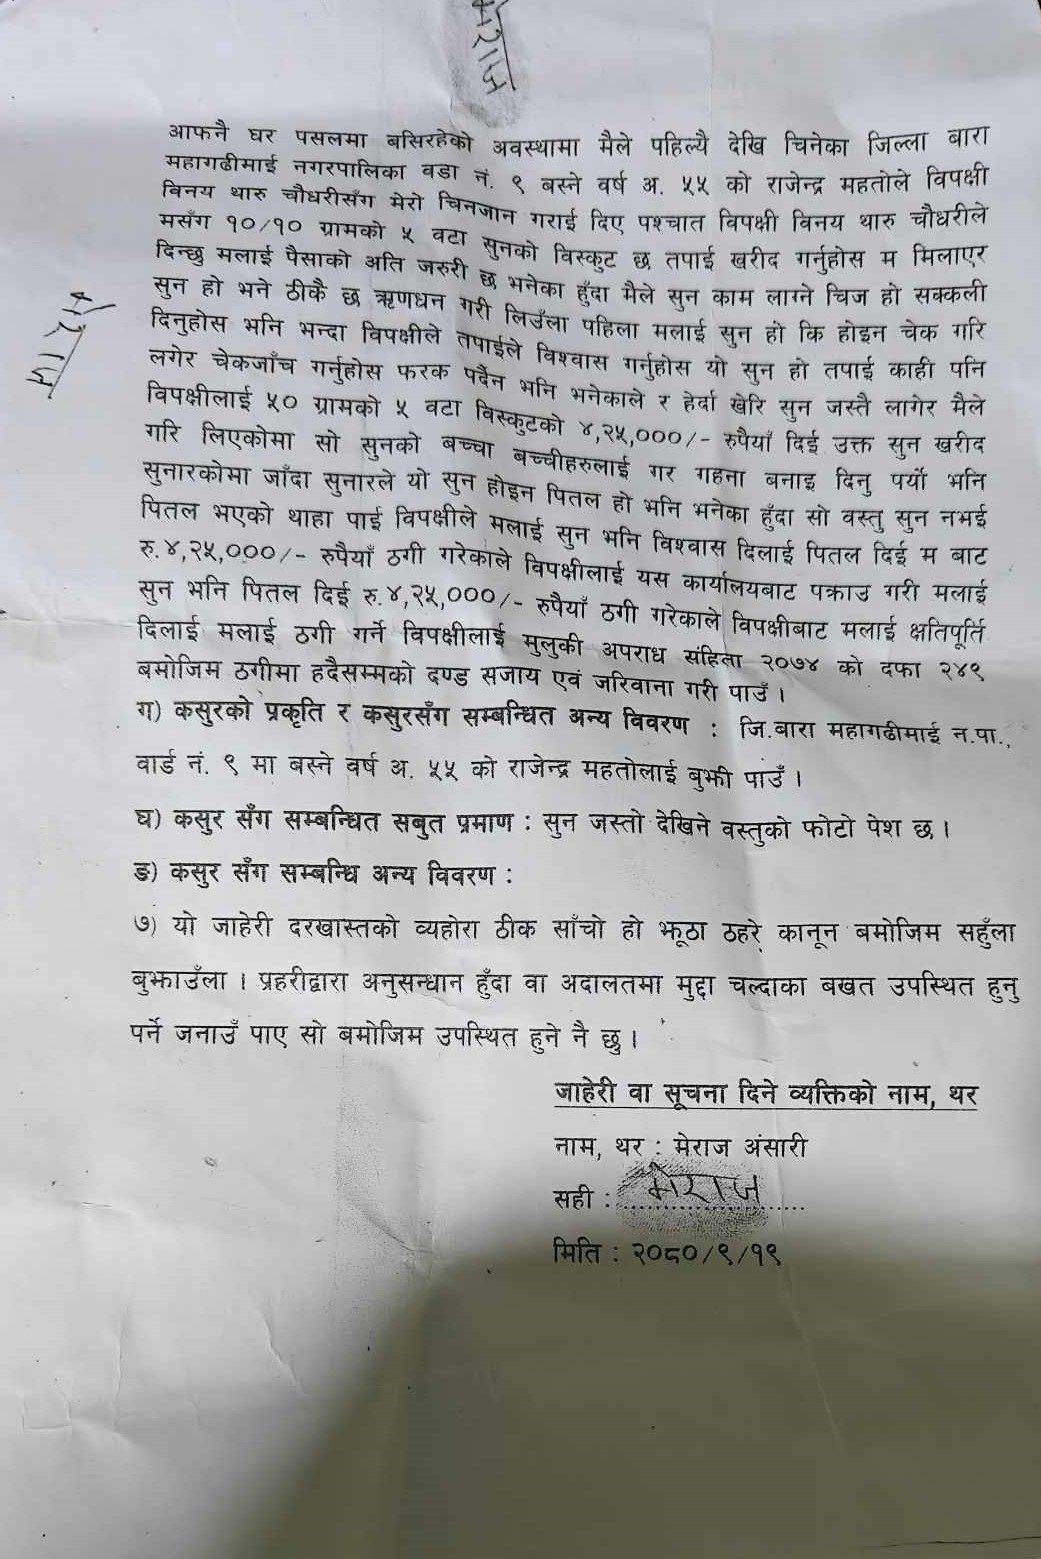 मेराज
मेराज
आफनै घर पसलमा बसिरहेको अवस्थामा मैले पहिल्यै देखि चिनेका जिल्ला बारा
महागढीमाई नगरपालिका वडा नं. ९ बस्ने वर्ष अ. ५५ को राजेन्द्र महतोले विपक्षी
विनय थारु चौधरीसँग मेरो चिनजान गराई दिए पश्चात विपक्षी विनय थारु चौधरीले
मसँग १०/१० ग्रामको ५ वटा सुनको विस्कुट छ तपाई खरीद गर्नुहोस म मिलाएर
दिन्छु मलाई पैसाको अति जरुरी छ भनेका हुँदा मैले सुन काम लाग्ने चिज हो सक्कली
सुन हो भने ठीकै छ ऋणधन गरी लिउँला पहिला मलाई सुन हो कि होइन चेक गरि
दिनुहोस भनि भन्दा विपक्षीले तपाईले विश्वास गर्नुहोस यो सुन हो तपाई काही पनि
लगेर चेकजाँच गर्नुहोस फरक पर्दैन भनि भनेकाले र हेर्दा खेरि सुन जस्तै लागेर मैले
विपक्षीलाई ५० ग्रामको ५ वटा विस्कुटको ४,२५,०००/- रुपैयाँ दिई उक्त सुन खरीद
गरि लिएकोमा सो सुनको बच्चा बच्चीहरुलाई गर गहना बनाइ दिनु पर्यो भनि
सुनारकोमा जाँदा सुनारले यो सुन होइन पितल हो भनि भनेका हुँदा सो वस्तु सुन नभई
पितल भएको थाहा पाई विपक्षीले मलाई सुन भनि विश्वास दिलाई पितल दिई म बाट
रु.४,२५,०००/- रुपैयाँ ठगी गरेकाले विपक्षीलाई यस कार्यालयबाट पक्राउ गरी मलाई
सुन भनि पितल दिई रु.४,२५,०००/- रुपैयाँ ठगी गरेकाले विपक्षीबाट मलाई क्षतिपूर्ति
दिलाई मलाई ठगी गर्ने विपक्षीलाई मुलुकी अपराध संहिता २०७४ को दफा २४९
बमोजिम ठगीमा हदैसम्मको दण्ड सजाय एवं जरिवाना गरी पाउँ ।
ग) कसुरको प्रकृति र कसुरसँग सम्बन्धित अन्य विवरण : जि.बारा महागढीमाई न.पा.,
वार्ड नं. ९ मा बस्ने वर्ष अ. ५५ को राजेन्द्र महतोलाई बुझी पाउँ ।
घ) कसुर सँग सम्बन्धित सबुत प्रमाण : सुन जस्तो देखिने वस्तुको फोटो पेश छ ।
ङ) कसुर सँग सम्बन्धि अन्य विवरण :
७) यो जाहेरी दरखास्तको व्यहोरा ठीक साँचो हो झूठा ठहरे कानून बमोजिम सहुँला
बुझाउँला । प्रहरीद्वारा अनुसन्धान हुँदा वा अदालतमा मुद्दा चल्दाका बखत उपस्थित हुनु
पर्ने जनाउँ पाए सो बमोजिम उपस्थित हुने नै छु ।
जाहेरी वा सूचना दिने व्यक्तिको नाम, थर
नाम, थर : मेराज अंसारी
सही : मेराज
मिति : २०८०/९/१९